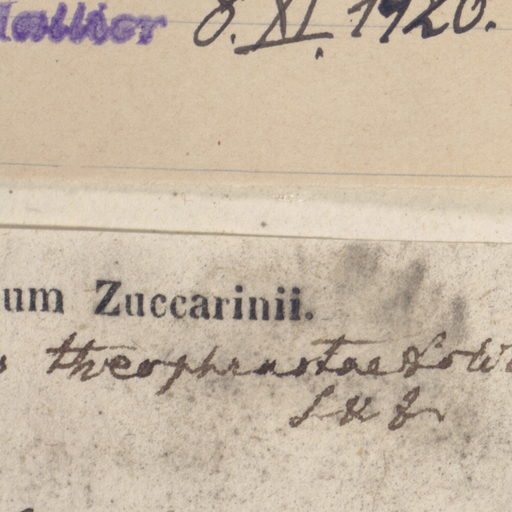 Hallier 8. XI. 1920.
um Zuccarinii.
theophrastaefoli